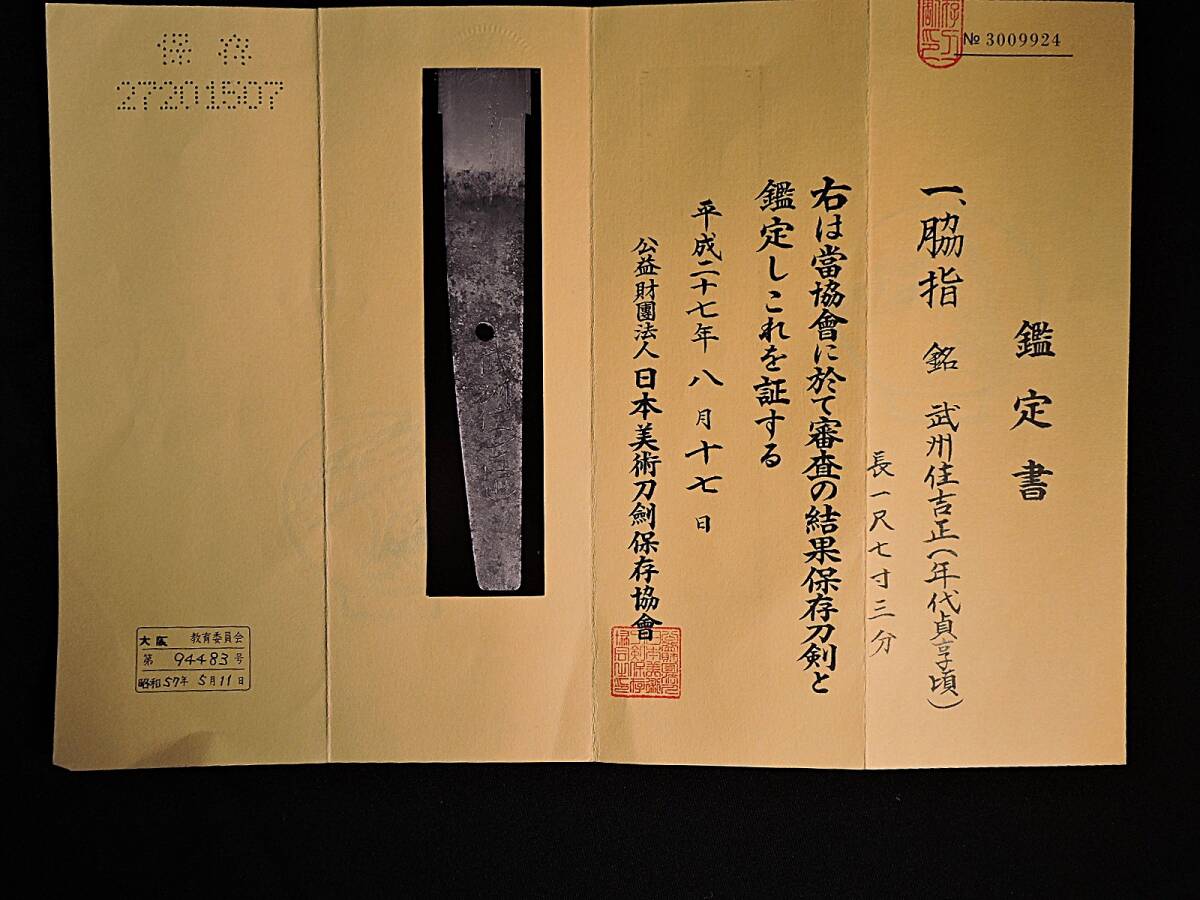 № 3009924
鑑定書
一、脇指 銘 武州住吉正(年代貞享頃)
長一尺七寸三分
右は當協會に於て審査の結果保存刀剣と
鑑定しこれを証する
平成二十七年八月十七日
公益財團法人 日本美術刀劍保存協會
保存
27201507
大阪 教育委員会
第 94483 号
昭和57年 5月11日